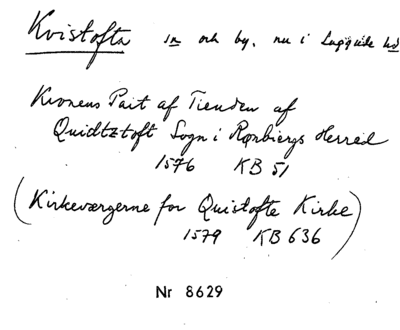 Kvistofta sn och by, nu i Luggude hd
Kronens Part af Tienden af
Quidtztoft Sogn i Rønbiergs Herred
1576 KB 51
(Kirkeværgerne for Quistofte Kirke)
1579 KB 636
Nr 8629